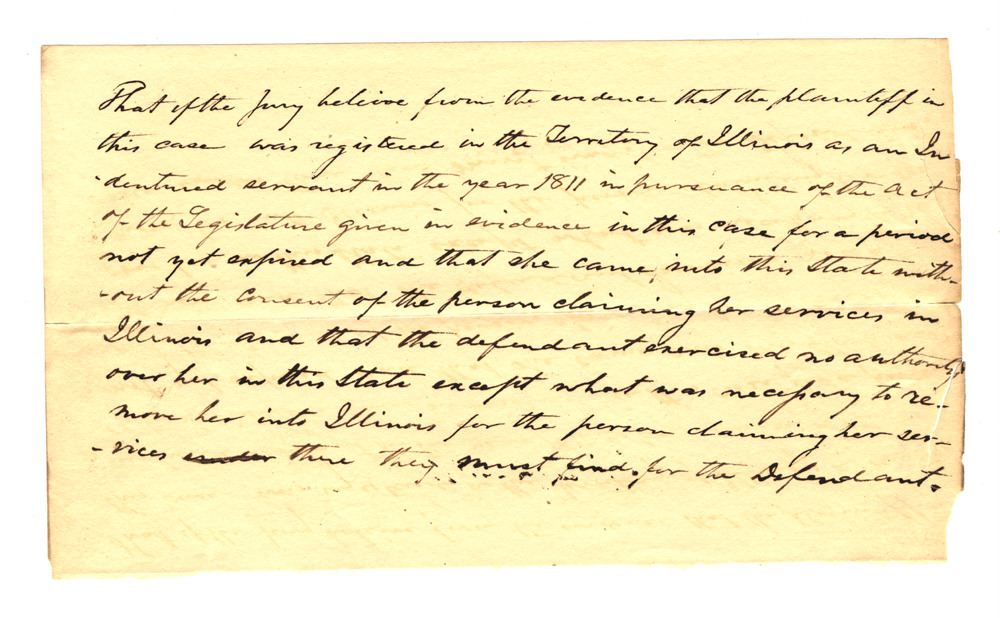 That if the Jury beleive from the evidence that the plaintiff in
this case was registered in the Territory of Illinois as an In
-dentured servant in the year 1811 in pursuance of the act
of the Legislature given in evidence in this case for a period
not yet expired and that she came into this State with-
-out the consent of the person claiming her services in
Illinois and that the defendant exercised no authority
over her in this State except what was necessary to re-
move her into Illinois for the person claiming her ser-
-vices under there they must find for the Defendant.